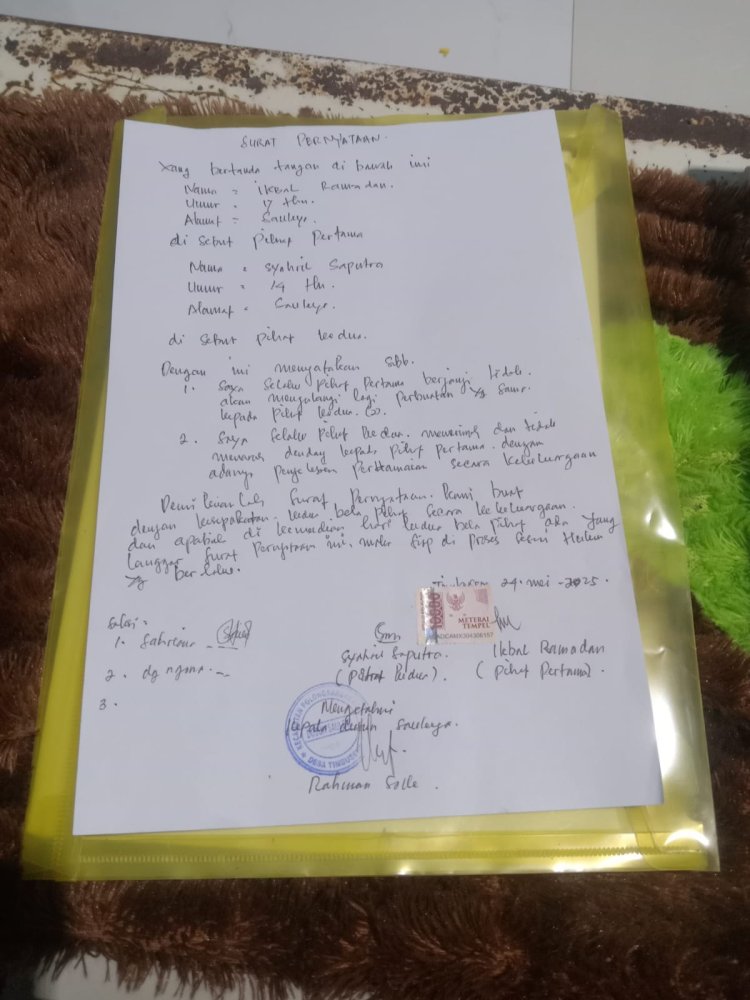 SURAT PERNYATAAN.
Yang bertanda tangan di bawah ini
Nama = Ikbal Ramadan.
Umur = 17 thn.
Alamat = Sauleya.
di sebut pihak Pertama
Nama = Syahril Saputra
Umur = 14 thn.
Alamat = Sauleya.
di sebut pihak kedua.
Dengan ini menyatakan sbb.
1. Saya selaku pihak Pertama berjanji tidak
akan mengulangi lagi perbuatan yg sama
kepada pihak kedua.
2. Saya selaku pihak kedua. menerima dan tidak
menaruh dendam kepada pihak pertama. dengan
adanya penyelesaian perdamaian secara kekeluargaan
Demikianlah Surat Pernyataan. kami buat
dengan kesepakatan. kedua bela pihak secara kekeluargaan.
dan apabila di kemudian hari kedua bela pihak ada yang
langgar surat pernyataan ini, maka siap di Proses sesuai Hukum
yg berlaku.
24. mei - 2025.
Saksi =
1. Sahrir
2. dg ngona
3.
10000
METERAI
TEMPEL
Syahril Saputra. Ikbal Ramadan
(Pihak kedua). (pihak Pertama).
Mengetahui
kepala dusun Sauleya.
DESA
Rahman Salle.